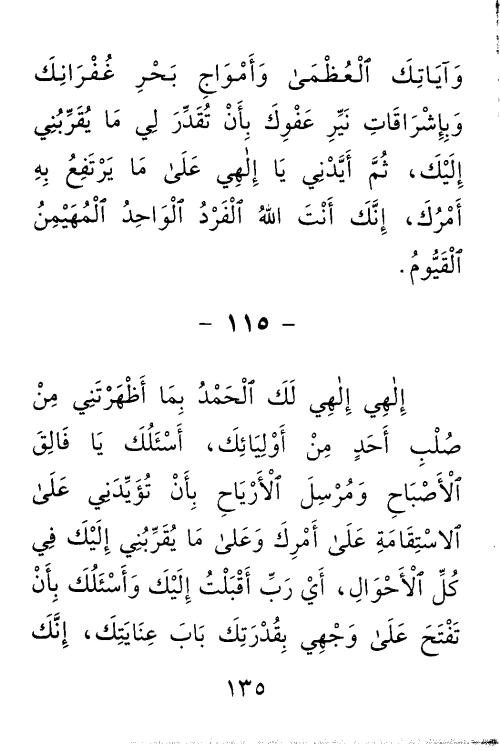 وَآيَاتِكَ ٱلْعُظْمَىٰ وَأَمْوَاجِ بَحْرِ غُفْرَانِكَ
وَبِإِشْرَاقَاتِ نَيِّرِ عَفْوِكَ بِأَنْ تُقَدِّرَ لِي مَا يُقَرِّبُنِي
إِلَيْكَ، ثُمَّ أَيَّدْنِي يَا إِلٰهِي عَلَىٰ مَا يَرْتَفِعُ بِهِ
أَمْرُكَ، إِنَّكَ أَنْتَ اللهُ ٱلْفَرْدُ ٱلْوَاحِدُ ٱلْمُهَيْمِنُ
ٱلْقَيُّومُ.
- ١١٥ -
إِلٰهِي إِلٰهِي لَكَ ٱلْحَمْدُ بِمَا أَظْهَرْتَنِي مِنْ
صُلْبِ أَحَدٍ مِنْ أَوْلِيَائِكَ، أَسْئَلُكَ يَا فَالِقَ
ٱلْأَصْبَاحِ وَمُرْسِلَ ٱلْأَرْيَاحِ بِأَنْ تُؤَيِّدَنِي عَلَىٰ
ٱلاسْتِقَامَةِ عَلَىٰ أَمْرِكَ وَعَلىٰ مَا يُقَرِّبُنِي إِلَيْكَ فِي
كُلِّ ٱلْأَحْوَالِ، أَيْ رَبِّ أَقْبَلْتُ إِلَيْكَ وَأَسْئَلُكَ بِأَنْ
تَفْتَحَ عَلَىٰ وَجْهِي بِقُدْرَتِكَ بَابَ عِنَايَتِكَ، إِنَّكَ
١٣٥